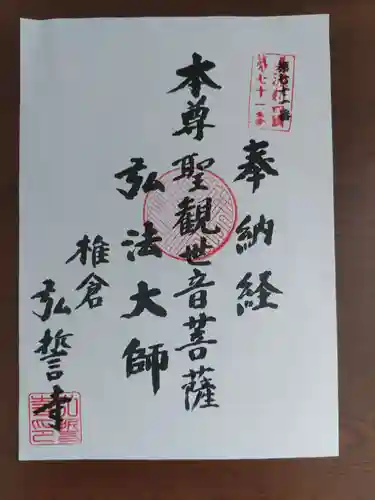 第七十一番
奉納経
本尊聖観世音菩薩
弘法大師
椎倉
弘誓寺